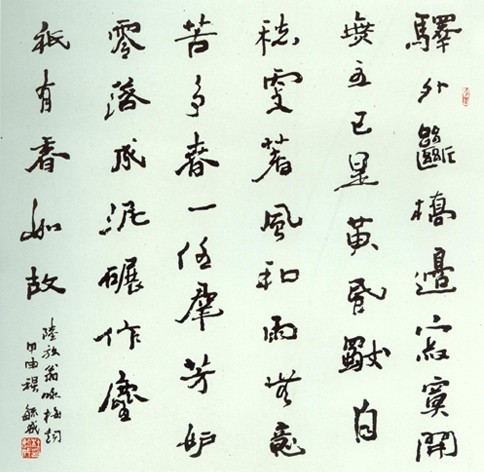 驛外斷橋邊寂寞開
無主已是黃昏獨自
愁更著風和雨無意
苦爭春一任羣芳妒
零落成泥碾作塵
祇有香如故
陸放翁咏梅詞
甲申